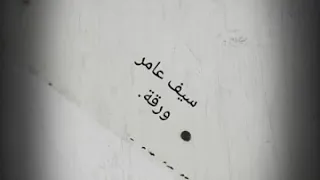 سيف عامر
ورقة.